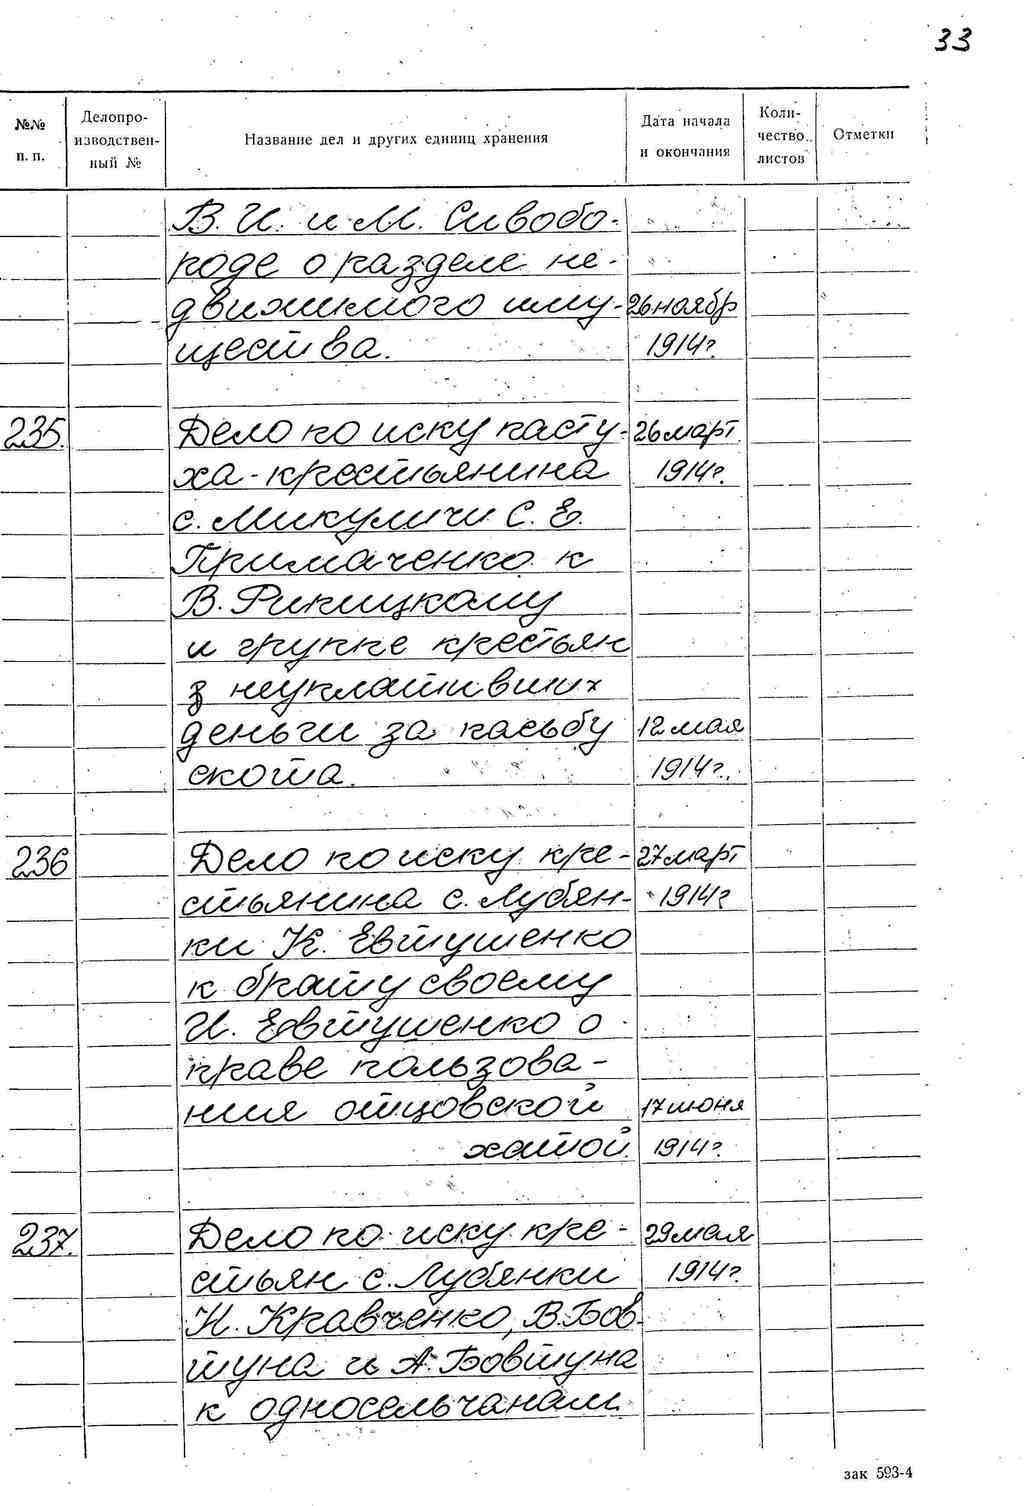 33
№№ п. п. Делопро-изводствен-ный № Название дел и других единиц хранения Дата начала и окончания Коли-чество листов Отметки
В. И. и М. Сивобо-
роде о разделе не-
движимого иму- 26 ноябр
щества. 1914 г.
235. Дело по иску пасту- 26 март.
ха-крестьянина 1914 г.
с. Микуличи С. Е.
Примаченко к
В. Рикицкому
и группе крестьян
неуплативших
деньги за пасьбу 12 мая
скота. 1914 г.
236 Дело по иску кре- 27 март
стьянина с. Лубян- 1914 г
ки К. Евтушенко
к брату своему
И. Евтушенко о
праве пользова-
ния отцовской 17 июня
хатой. 1914 г.
237. Дело по иску кре- 29 мая
стьян с. Лубянки 1914 г.
Н. Кравченко, В. Бов-
туна и А. Бовтуна
к односельчанам
зак 593-4